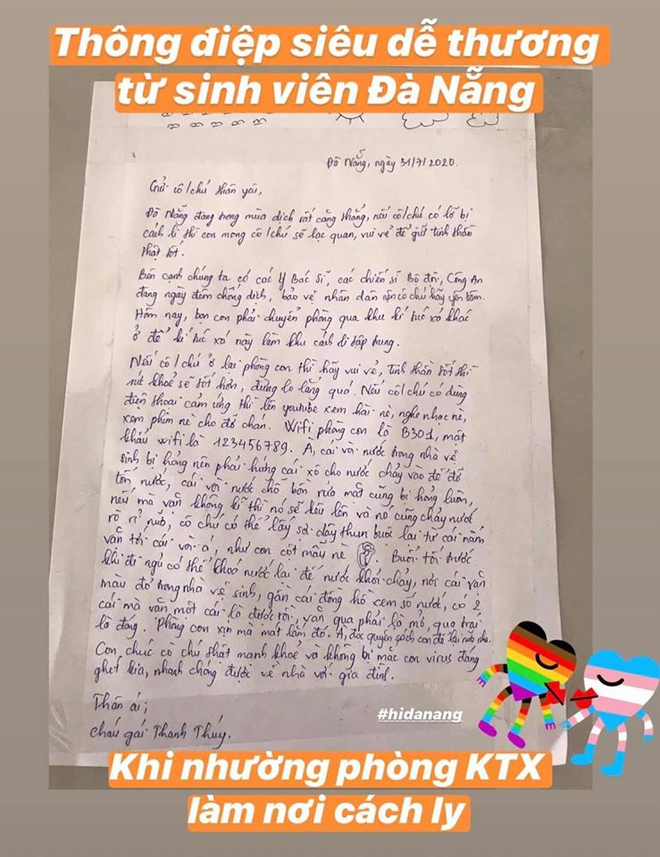 Thông điệp siêu dễ thương
từ sinh viên Đà Nẵng
Đà Nẵng, ngày 31/7/2020.
Gửi cô/chú thân yêu,
Đà Nẵng đang trong mùa dịch rất căng thẳng, nếu cô/chú có lỡ bị
cách li thì con mong cô/chú sẽ lạc quan, vui vẻ để giữ tinh thần
thật tốt.
Bên cạnh chúng ta có các Y Bác Sĩ, các chiến sĩ Bộ đội, Công An
đang ngày đêm chống dịch, bảo vệ nhân dân nên cô chú hãy yên tâm.
Hôm nay, bọn con phải chuyển phòng qua khu kí túc xá khác
ở để kí túc xá này làm khu cách li tập trung.
Nếu cô/chú ở lại phòng con thì hãy vui vẻ, tinh thần tốt thì
sức khoẻ sẽ tốt hơn, đừng lo lắng quá. Nếu cô/chú có dùng
điện thoại cảm ứng thì lên youtube xem hài nè, nghe nhạc nè,
xem phim nè cho đỡ chán. Wifi phòng con là B301, mật
khẩu wifi là 123456789. À, cái vòi nước trong nhà vệ
sinh bị hỏng nên phải hứng cái xô cho nước chảy vào để đỡ
tốn nước, cái vòi nước chỗ bồn rửa mặt cũng bị hỏng luôn,
nếu mà vặn không kĩ thì nó sẽ kêu lên và nó cũng chảy nước
rò rỉ nữa, cô chú có thể lấy sợi dây thun buộc lại từ cái nắm
vặn tới cái vòi á, như con cột mẫu nè. Buổi tối trước
khi đi ngủ có thể khoá nước lại để nước khỏi chảy, nơi cái vặn
màu đỏ trong nhà vệ sinh, gần cái đồng hồ xem số nước, có 2
cái mà vặn một cái là được rồi, vặn qua phải là mở, qua trái
là đóng. Phòng con xịn mà mát lắm đó. À, đọc quyển sách con để lại nữa nha.
Con chúc cô chú thật mạnh khoẻ và không bị mắc con virus đáng
ghét kia, nhanh chóng được về nhà với gia đình.
Thân ái;
cháu gái Thanh Thúy.
#hidanang
Khi nhường phòng KTX
làm nơi cách ly